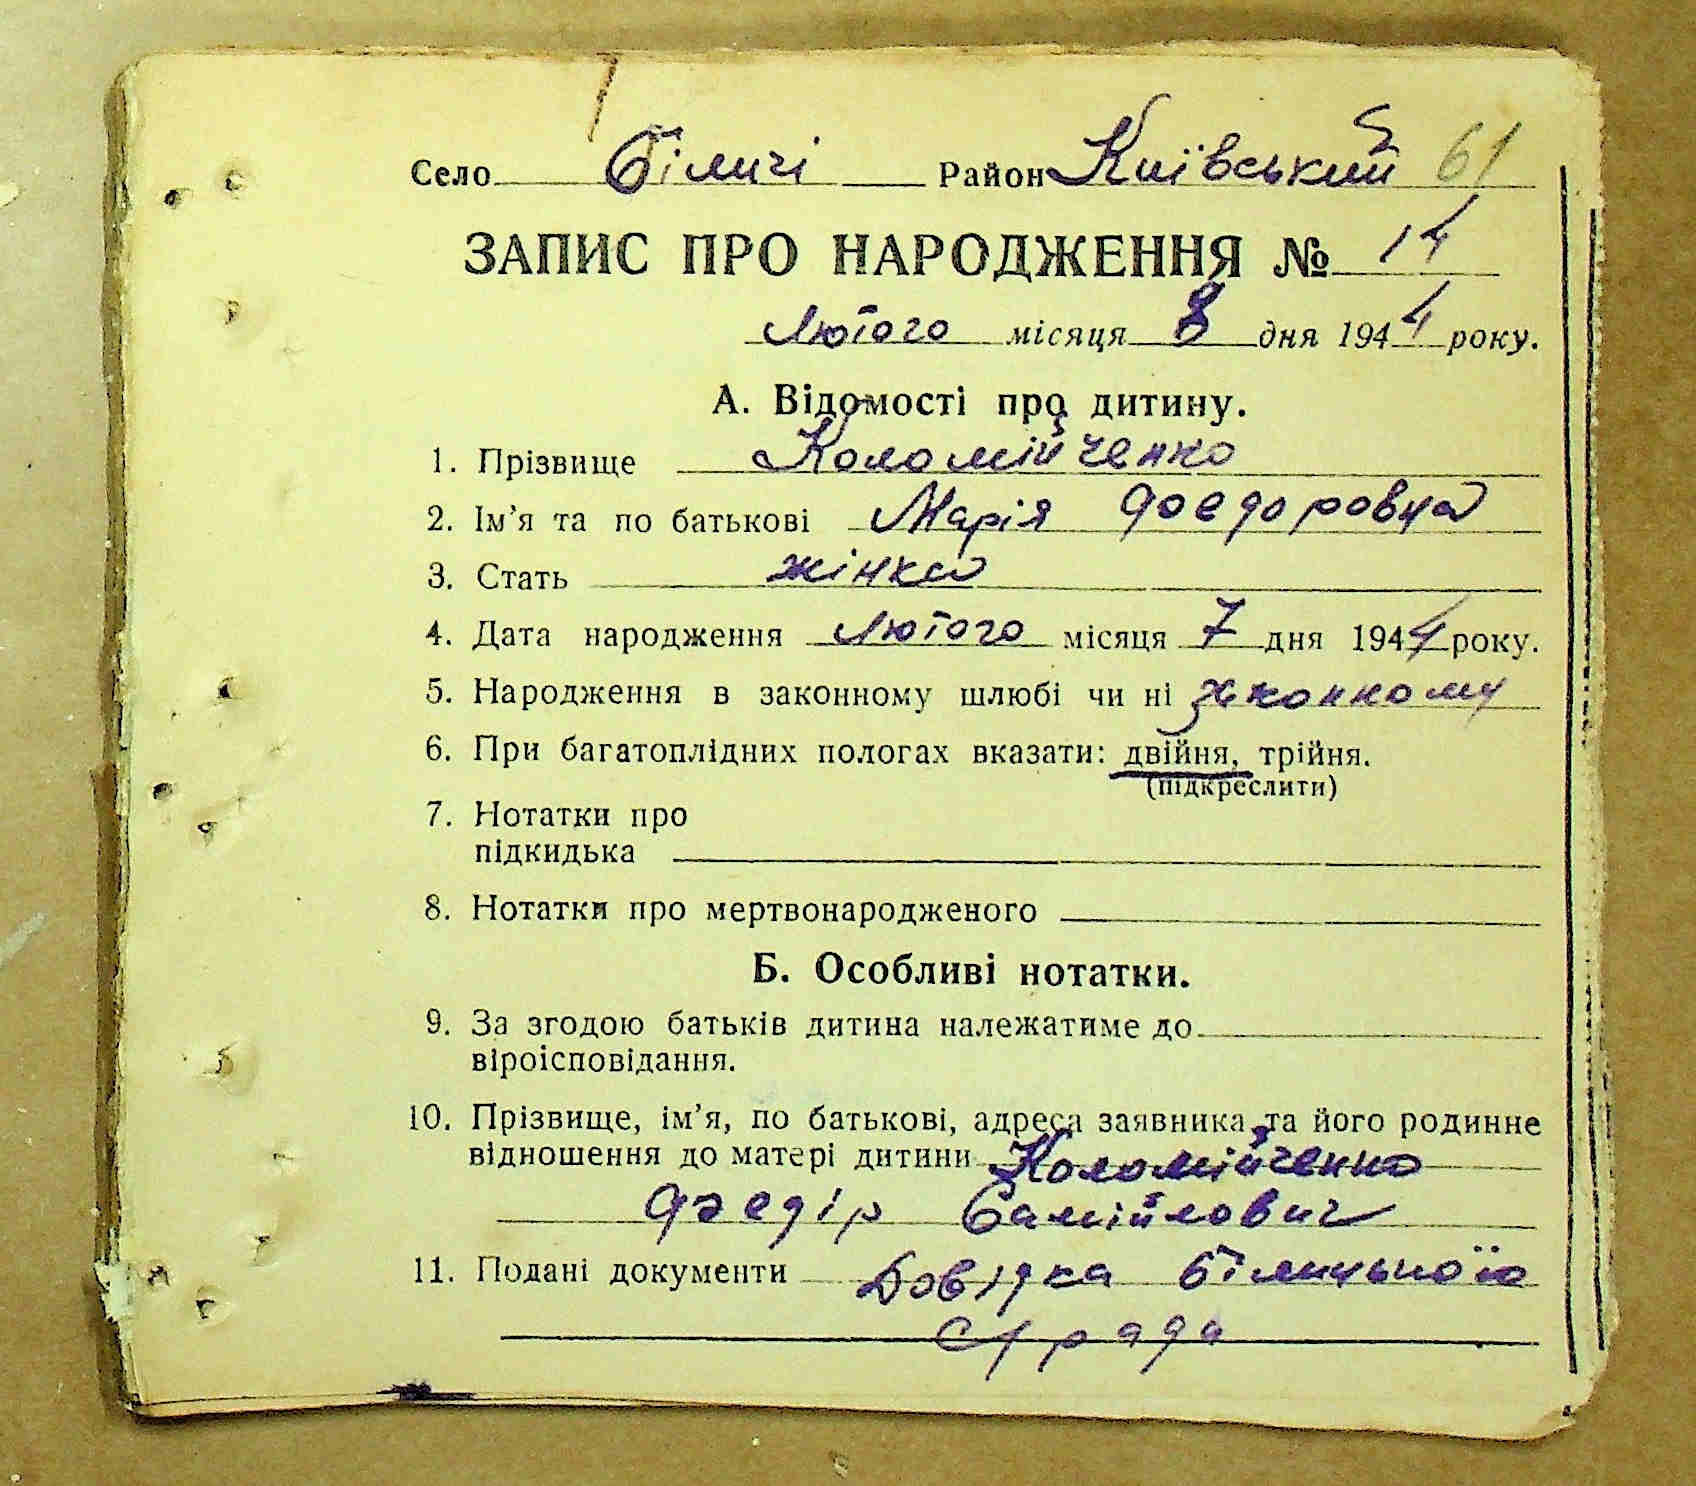 Село Біличі Район Київський 61
ЗАПИС ПРО НАРОДЖЕННЯ № 14
Лютого місяця 8 дня 1944 року.
А. Відомості про дитину.
1. Прізвище Коломійченко
2. Ім’я та по батькові Марія Фоедоровна
3. Стать жінка
4. Дата народження Лютого місяця 7 дня 1944 року.
5. Народження в законному шлюбі чи ні законному
6. При багатоплідних пологах вказати: двійня, трійня.
(підкреслити)
7. Нотатки про
підкидька
8. Нотатки про мертвонародженого
Б. Особливі нотатки.
9. За згодою батьків дитина належатиме до
віроісповідання.
10. Прізвище, ім’я, по батькові, адреса заявника та його родинне
відношення до матері дитини Коломійченко
Фоедір Самійлович
11. Подані документи Довідка